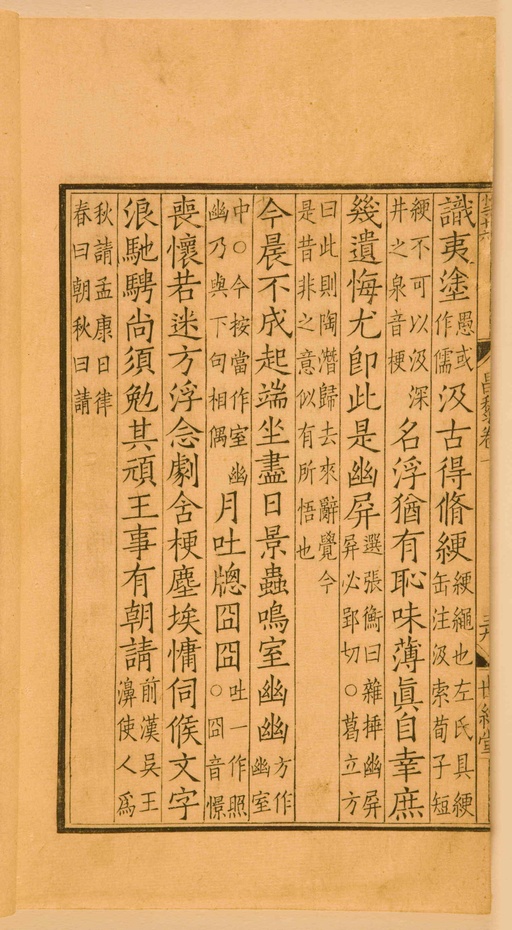 識夷塗愚或作儒汲古得脩綆綆繩也左氏具綆缶注汲索荀子短
綆不可以汲深井之泉音梗名浮猶有恥味薄眞自幸庶
幾遺悔尤卽此是幽屏選張衡曰雜揷幽屏屏必郢切○葛立方
曰此則陶潛歸去來辭覺今是昔非之意似有所悟也
今晨不成起端坐盡日景蟲鳴室幽幽方作幽室
中○今按當作室幽幽乃與下句相偶月吐牕囧囧吐一作照○囧音憬
喪懷若迷方浮念劇舍梗塵埃慵伺候文字
浪馳騁尚須勉其頑王事有朝請前漢吳王濞使人爲
秋請孟康曰律春曰朝秋曰請
昌黎卷一
世綵堂